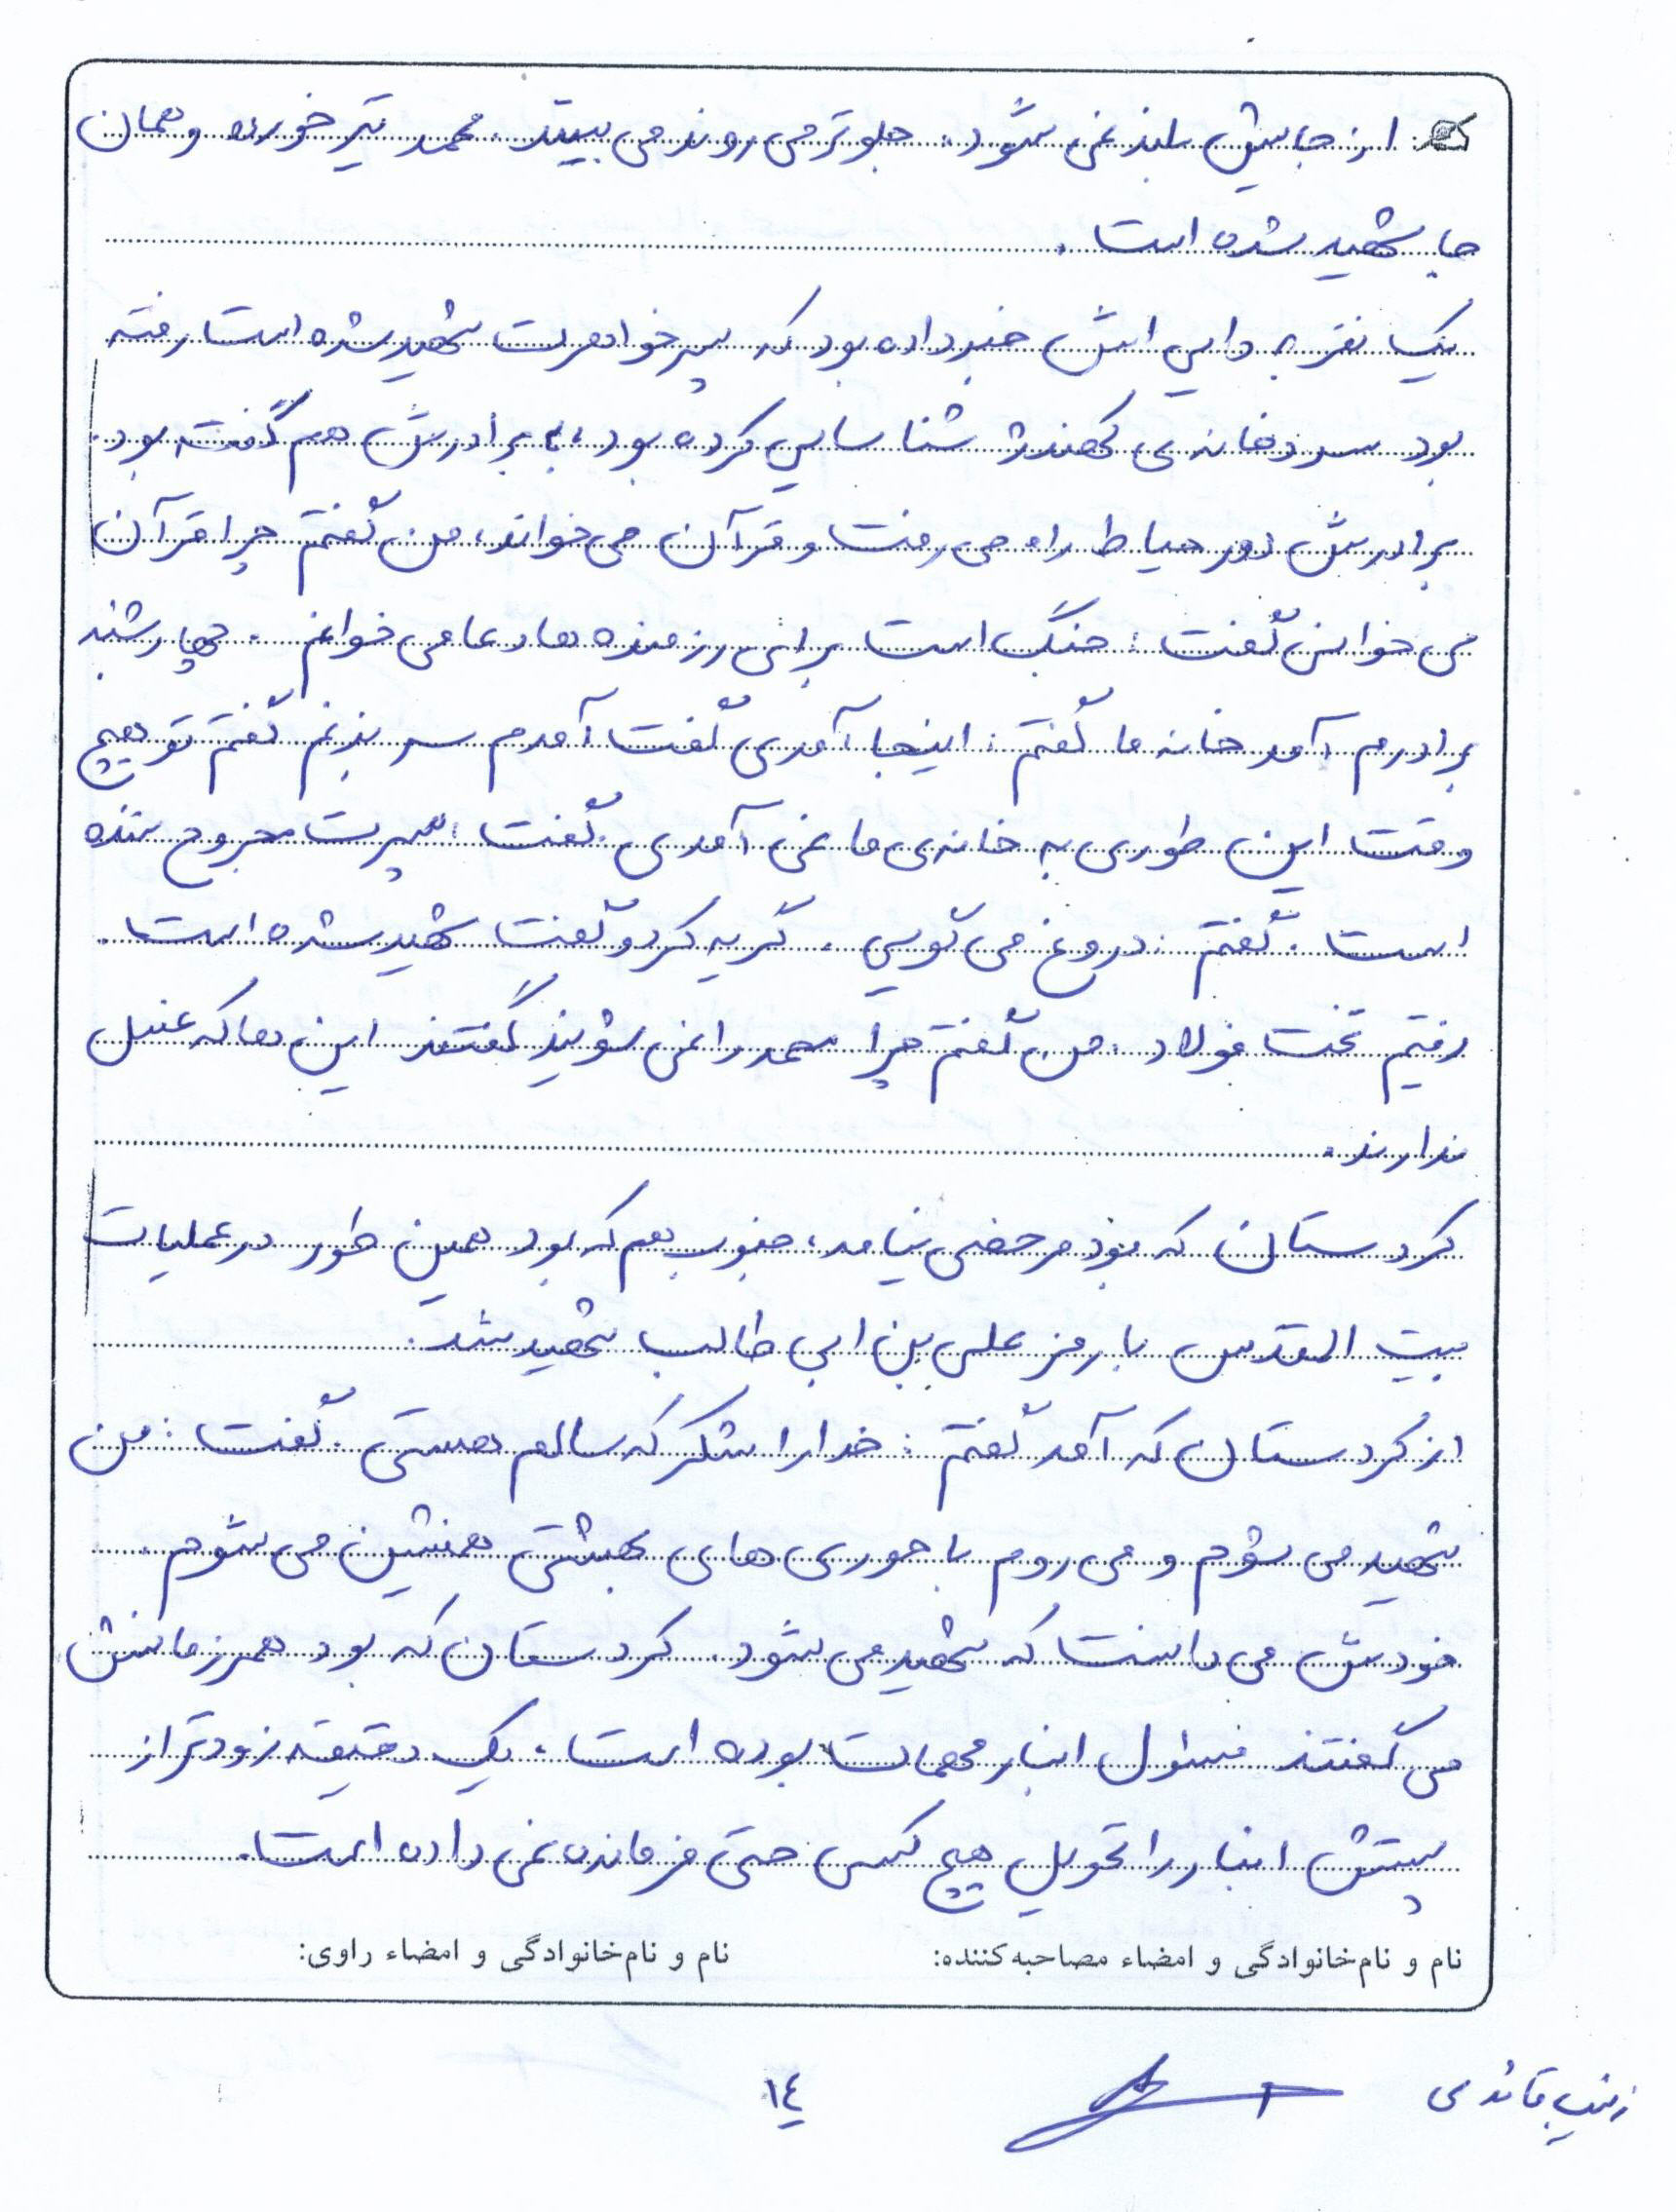 از جایش بلند نمی شود. جلوتر می روند می بینند. محمد تیر خورده و همان
جا شهید شده است.
یک نفر به دایی اش خبر داده بود که پسر خواهرت شهید شده است رفته
بود سردخانه ی کهندژ شناسایی کرده بود، به برادرش هم گفته بود.
برادرش دور حیاط راه می رفت و قرآن می خواند، من گفتم چرا قرآن
می خوانی گفت: جنگ است برای رزمنده ها دعا می خوانم. چهارشنبه
برادرم آمد خانه ما گفتم: اینجا آمدی گفت آمدم سر بزنم گفتم تو هیچ
وقت این طوری به خانه ی ما نمی آمدی. گفت: پسرت مجروح شده
است. گفتم: دروغ می گویی. گریه کرد و گفت شهید شده است.
رفتیم تخت فولاد. من گفتم چرا محمد را نمی شویند گفتند این ها که غسل
ندارند.
کردستان که بود مرخصی نیامد، جنوب هم که بود همین طور در عملیات
بیت المقدس با رمز علی بن ابی طالب شهید شد.
از کردستان که آمد گفتم: خدا را شکر که سالم هستی. گفت: من
شهید می شوم و می روم با حوری های بهشتی همنشین می شوم.
خودش می دانست که شهید می شود. کردستان که بود همرزمانش
می گفتند مسئول انبار مهمات بوده است، یک دقیقه زودتر از
پستش انبار را تحویل هیچ کس حتی فرمانده نمی داده است.
نام و نام‌خانوادگی و امضاء مصاحبه‌کننده: نام و نام‌خانوادگی و امضاء راوی:
زینب قائدی ١٤